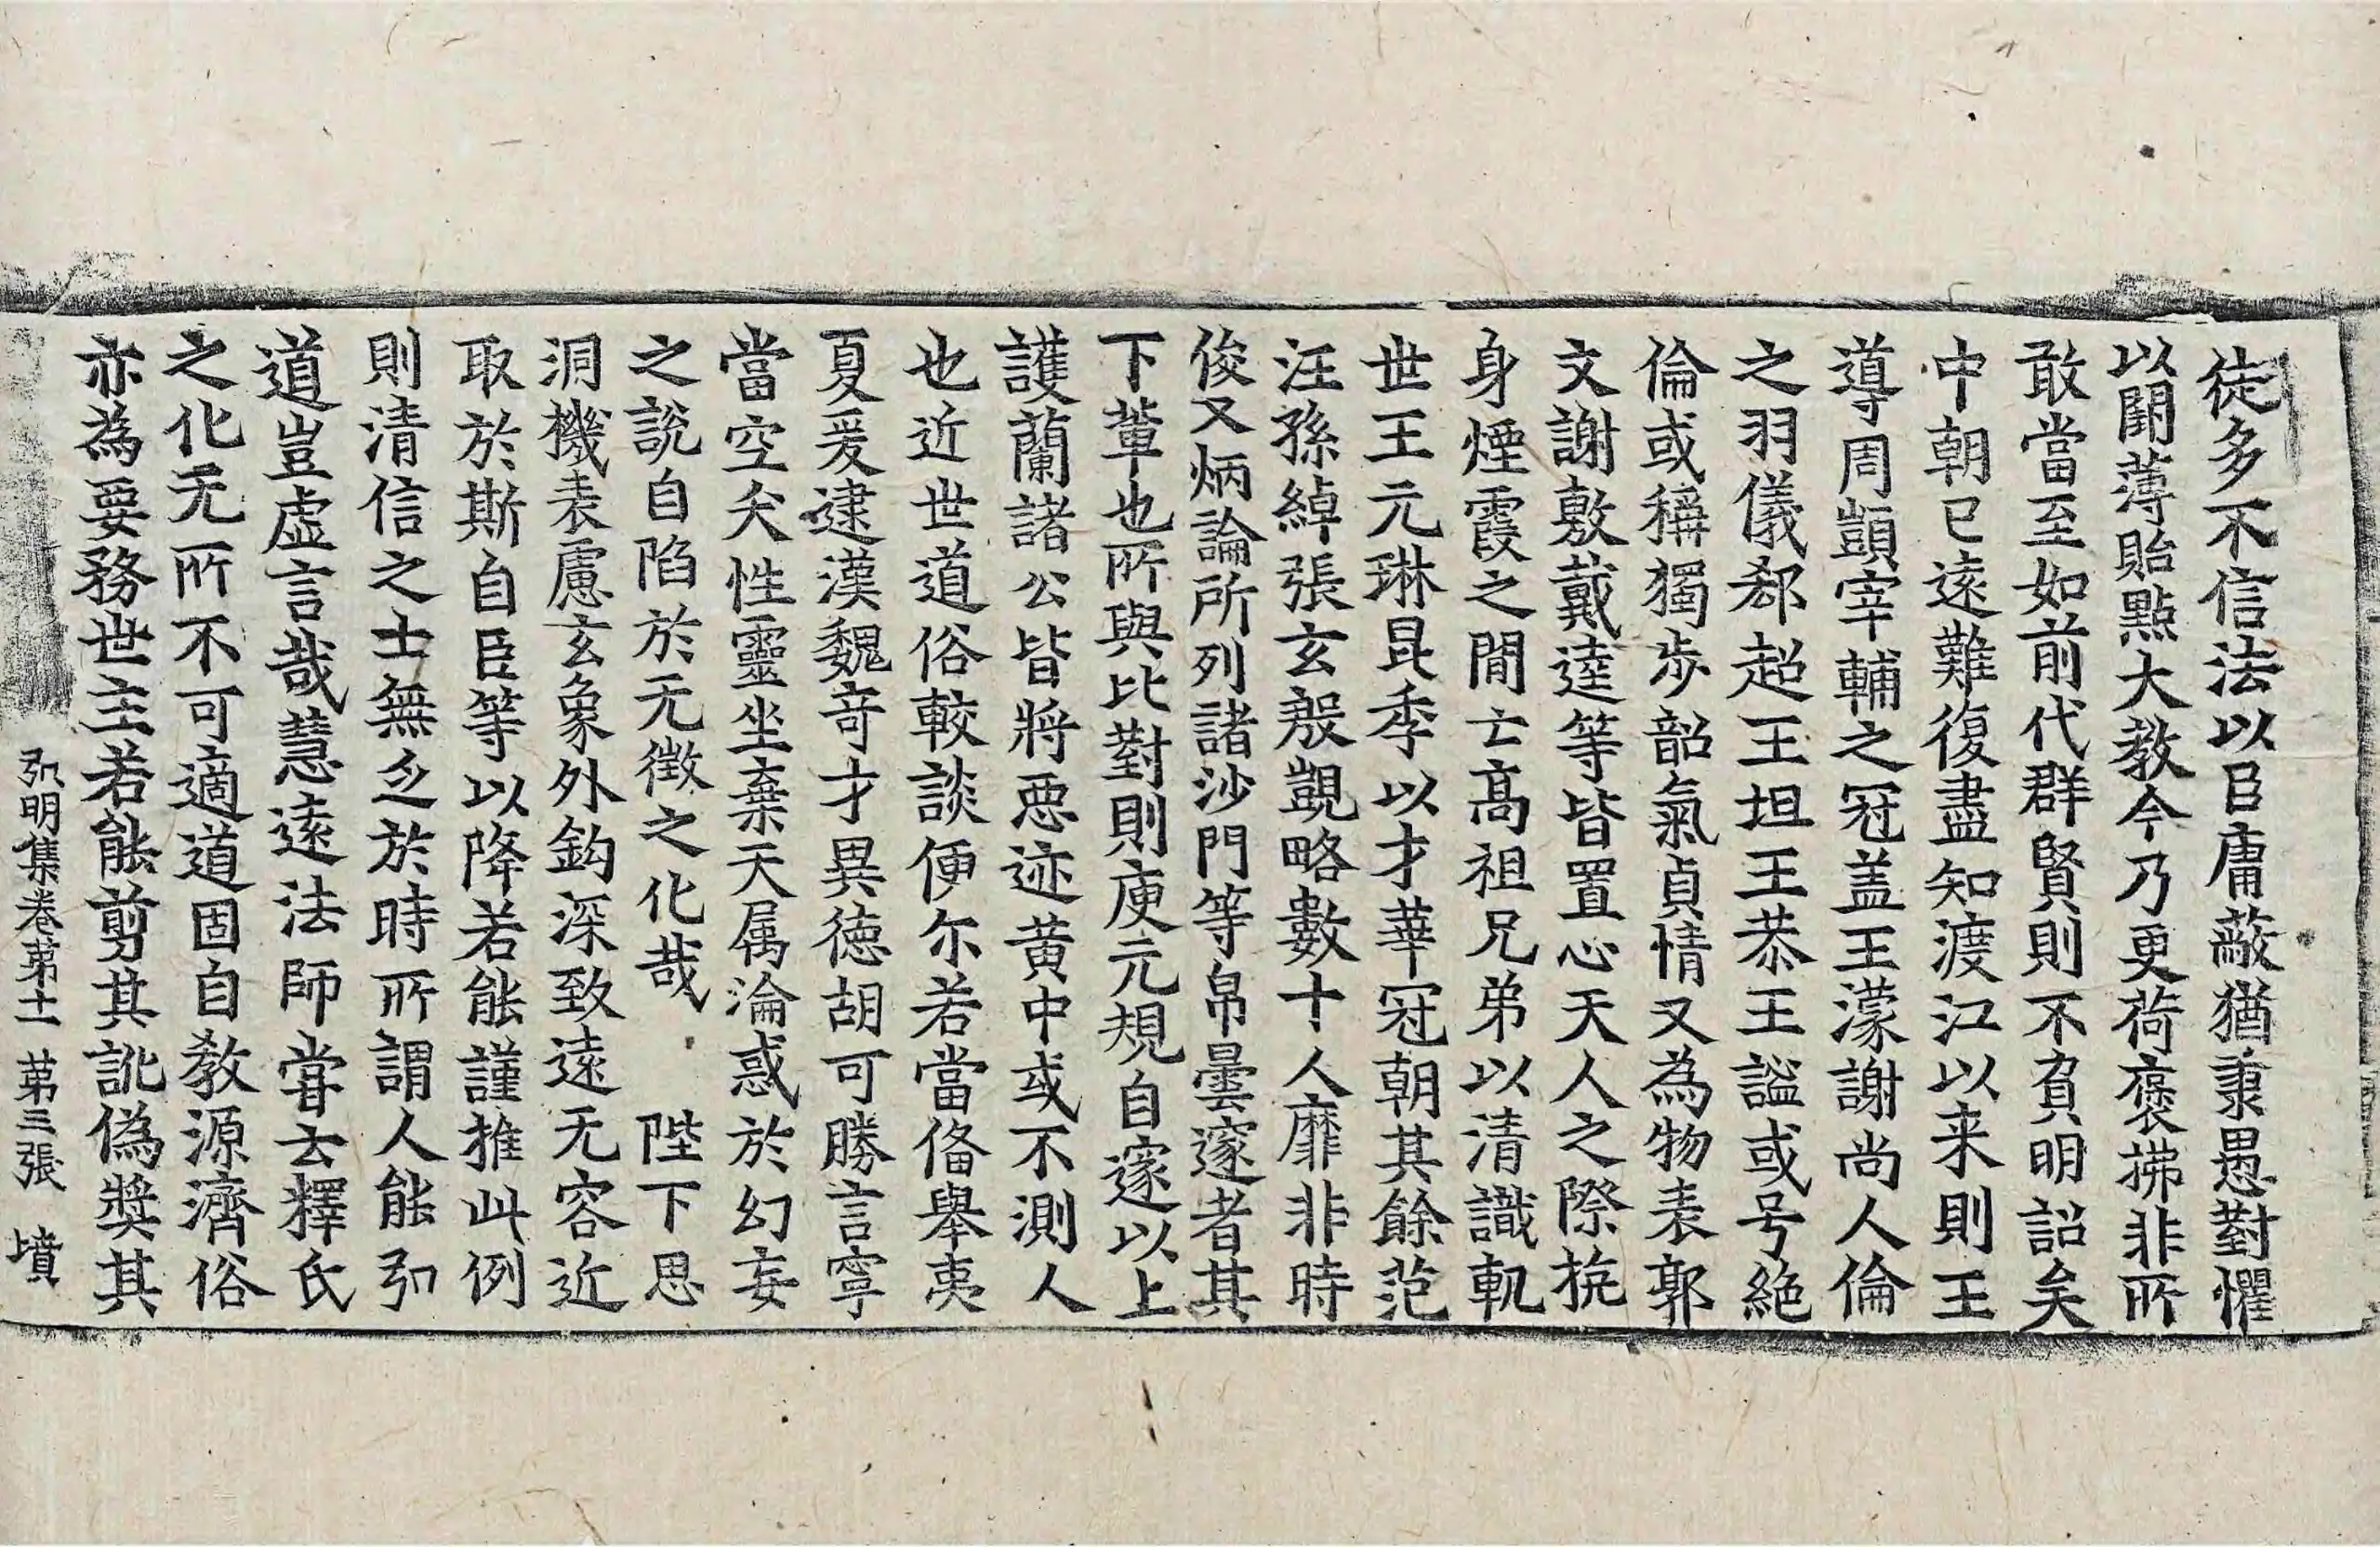 徒多不信法以臣庸蔽猶秉愚對懼
以闕薄貽點大教今乃更荷褒拂非所
敢當至如前代群賢則不負明詔矣
中朝已遠難復盡知渡江以来則王
導周顗宰輔之冠盖王濛謝尚人倫
之羽儀郄超王坦王恭王謐或号絶
倫或稱獨步韶氣貞情又為物表郭
文謝敷戴逵等皆置心天人之際抗
身煙霞之間亡高祖兄弟以清識軌
世王元琳昆季以才華冠朝其餘范
汪孫綽張玄殷覬略數十人靡非時
俊又炳論所列諸沙門等帛曇邃者其
下輩也所與比對則庾元規自邃以上
護蘭諸公皆將惡迹黄中或不測人
也近世道俗較談便尓若當俻舉夷
夏爰逮漢魏奇才異徳胡可勝言寧
當空夭性靈坐棄天属淪惑於幻妄
之説自陷於无徵之化哉　陛下思
洞機表慮玄象外鈎深致遠无容近
取於斯自臣等以降若能謹推此例
則清信之士無乏於時所謂人能弘
道豈虚言哉慧遠法師嘗云釋氏
之化无所不可適道固自教源濟俗
亦為要務世主若能剪其訛偽奬其
弘明集卷第十一　第三張　墳